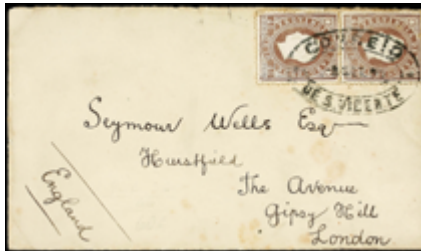 CORREIO
DE S. VICENTE
Seymour Wells Esq
Hurstfield
The Avenue
Gipsy Hill
London
England